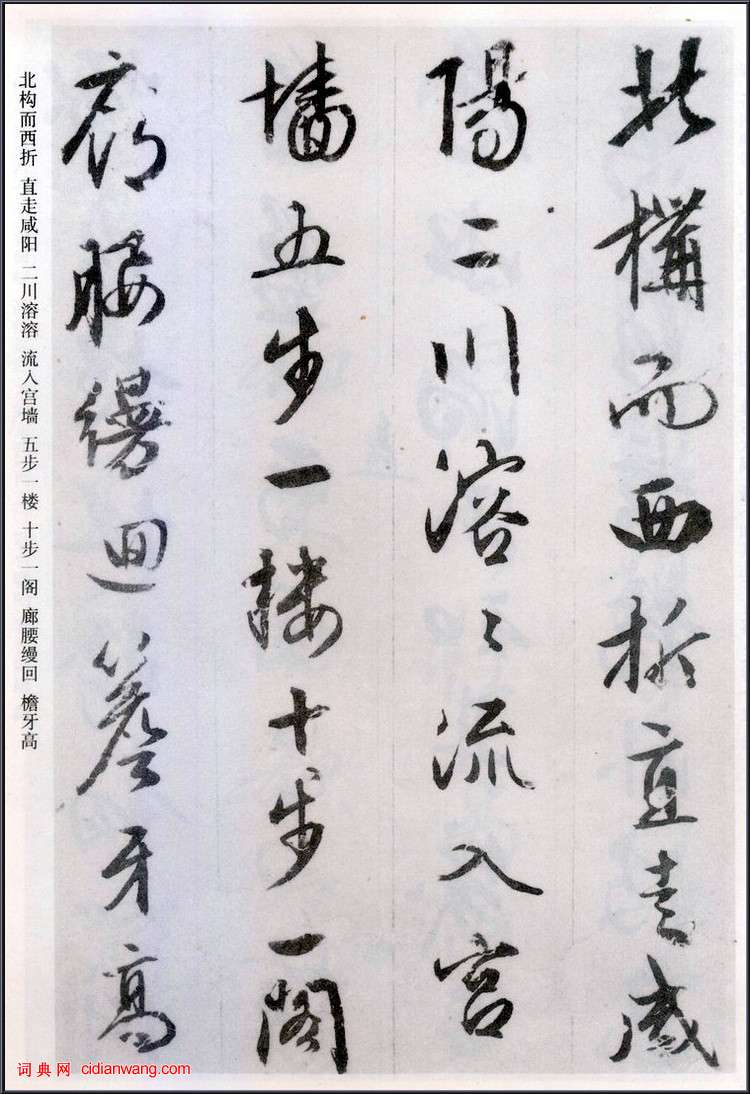 北構而西折直走咸
陽二川溶〻流入宫
墻五步一楼十步一閣
廊腰縵迴簷牙高
北构而西折 直走咸阳 二川溶溶 流入宫墙 五步一楼 十步一阁 廊腰缦回 檐牙高
词典网 cidianwang.com